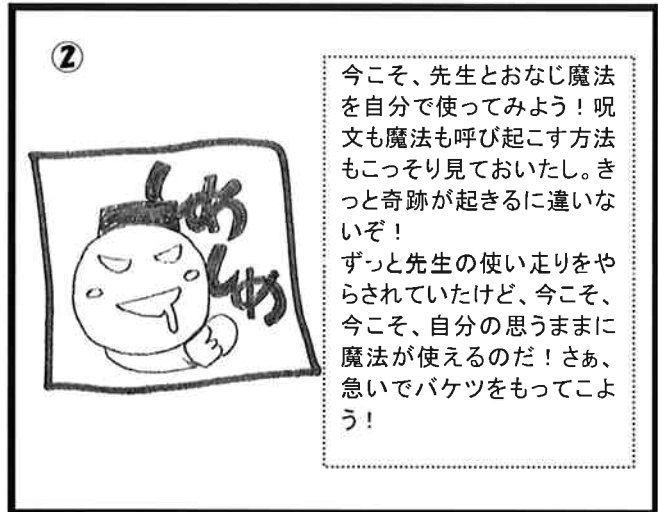 ②
しめしめ
今こそ、先生とおなじ魔法
を自分で使ってみよう！呪
文も魔法も呼び起こす方法
もこっそり見ておいたし。き
っと奇跡が起きるに違いな
いぞ！
ずっと先生の使い走りをや
らされていたけど、今こそ、
今こそ、自分の思うままに
魔法が使えるのだ！さぁ、
急いでバケツをもってこよ
う！